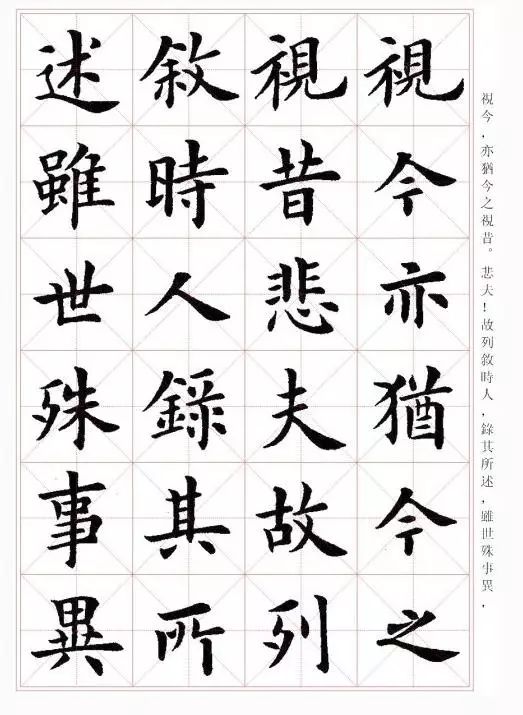 視今，亦猶今之視昔。悲夫！故列敘時人，錄其所述，雖世殊事異，
視今亦猶今之
視昔悲夫故列
敘時人錄其所
述雖世殊事異